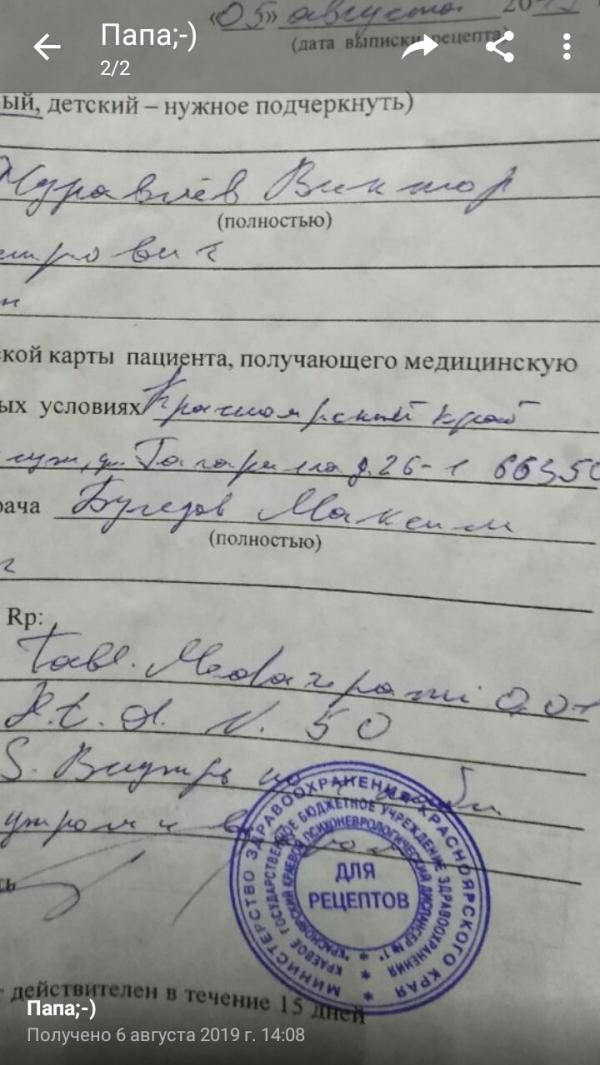 «05» августа 20
Папа;-)
(дата выписки рецепта)
2/2
ый, детский – нужное подчеркнуть)
Журавлёв Виктор
(полностью)
трович
н
кой карты пациента, получающего медицинскую
ых условиях Красноярский край
ул. Гагарина д. 26-1
рача Максим
(полностью)
Rp:
Tabl. Medazepami 0,01
D.t.d. N. 50
S. Внутрь по
утром и
МИНИСТЕРСТВО ЗДРАВООХРАНЕНИЯ КРАСНОЯРСКОГО КРАЯ
КРАЕВОЕ ГОСУДАРСТВЕННОЕ БЮДЖЕТНОЕ УЧРЕЖДЕНИЕ ЗДРАВООХРАНЕНИЯ
"КРАСНОЯРСКИЙ КРАЕВОЙ ПСИХОНЕВРОЛОГИЧЕСКИЙ ДИСПАНСЕР №1"
ДЛЯ
РЕЦЕПТОВ
ь
действителен в течение 15 дней
Папа;-)
Получено 6 августа 2019 г. 14:08